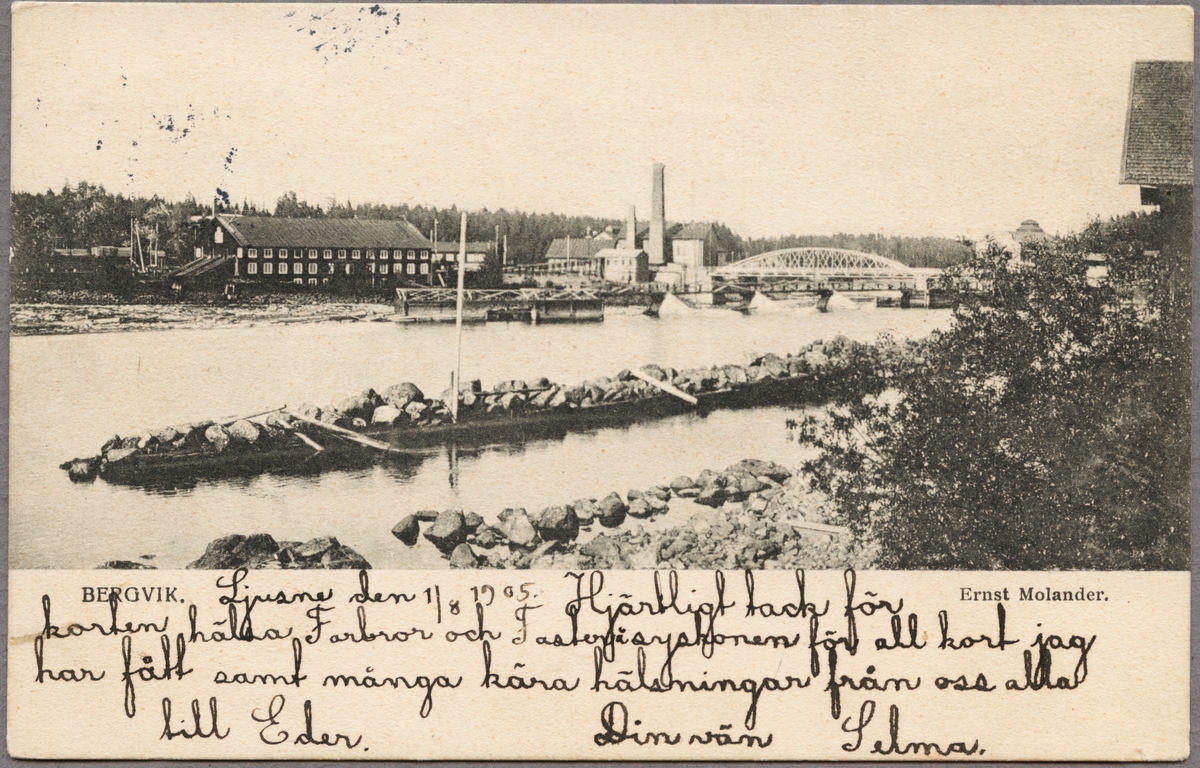 BERGVIK. Ljusne den 1/8 1905. Hjärtligt tack för Ernst Molander.
korten hälsa Farbror och Faster syskonen för all kort jag
har fått samt många kära hälsningar från oss alla
till Eder. Din vän Selma.